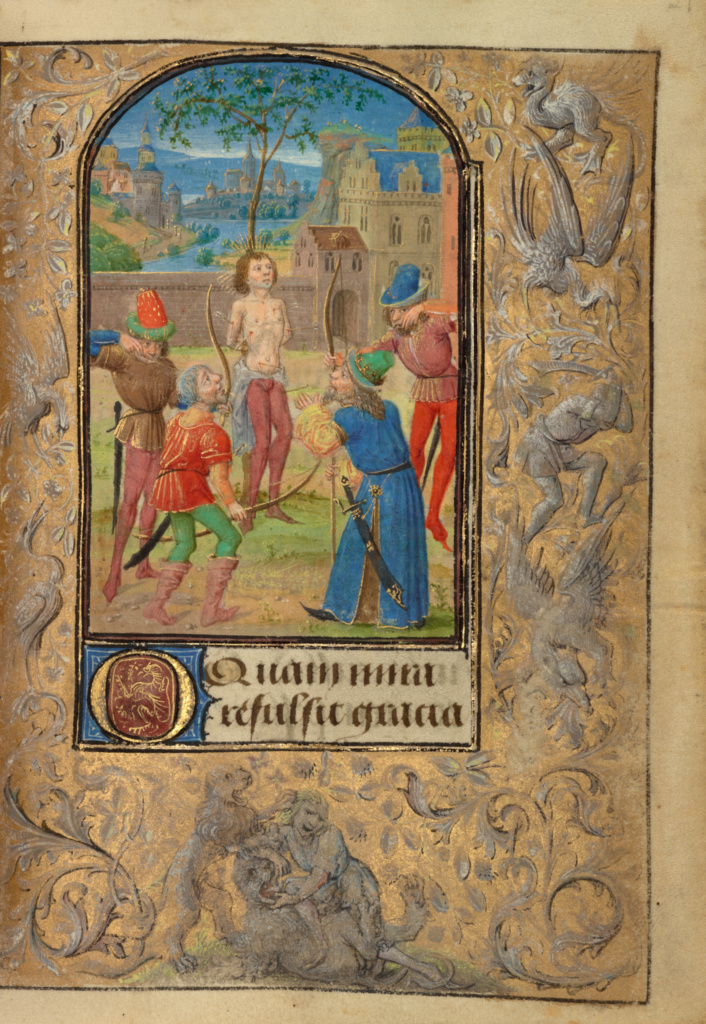 O Quam mira
refulsit gracia